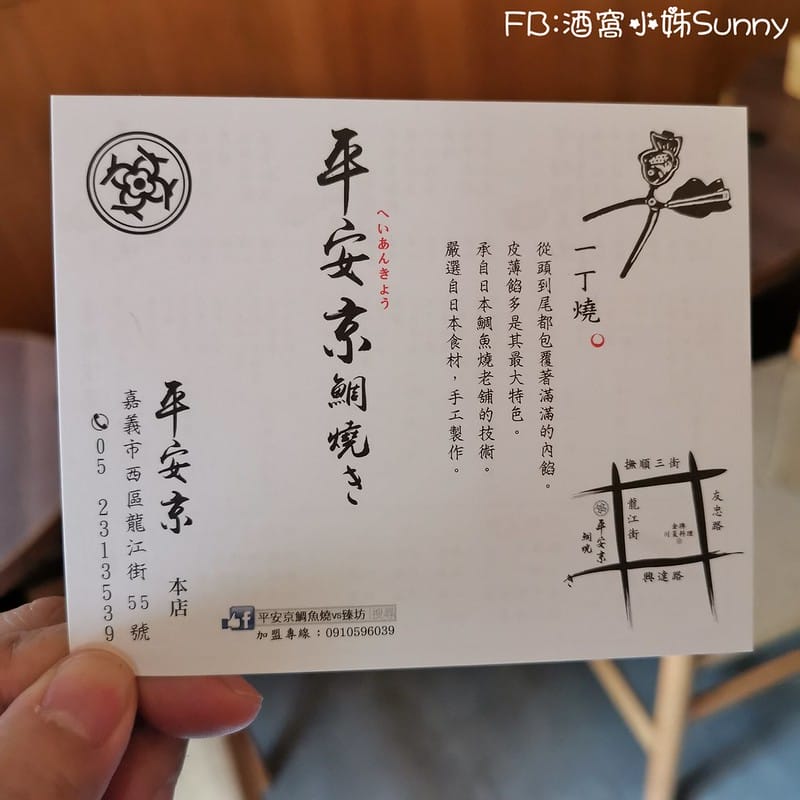 FB:酒窩小姊Sunny
一丁燒
從頭到尾都包覆著滿滿的內餡。
皮薄餡多是其最大特色。
承自日本鯛魚燒老舖的技術。
嚴選自日本食材，手工製作。
平安京鯛燒き
へいあんきょう
平安京 本店
嘉義市西區龍江街55號
05 2313539
平安京鯛魚燒vs臻坊 搜尋
加盟專線：0910596039
撫順三街
友忠路
龍江街
興達路
平安京
鯛燒き